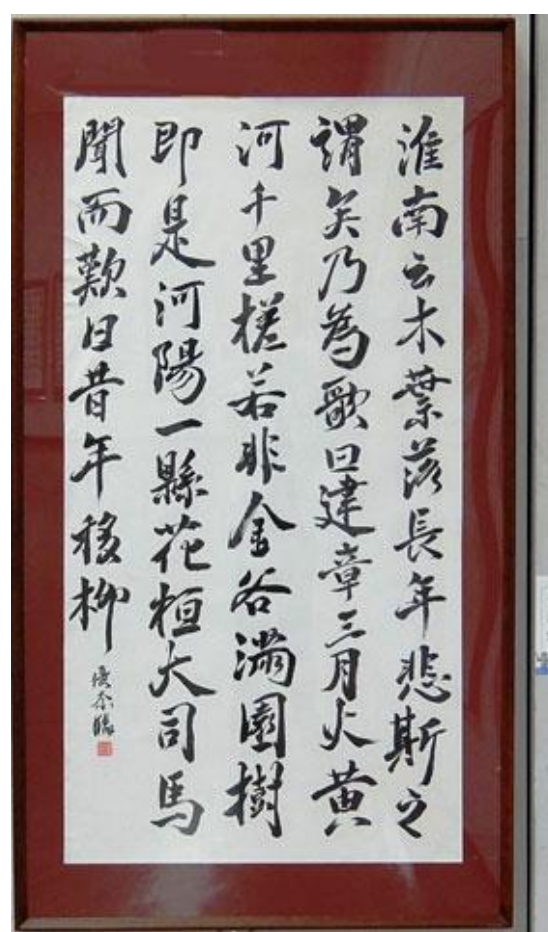 淮南云木葉落長年悲斯之
謂矣乃為歌曰建章三月火黄
河千里槎若非金谷滿園樹
即是河陽一縣花桓大司馬
聞而歎曰昔年移柳